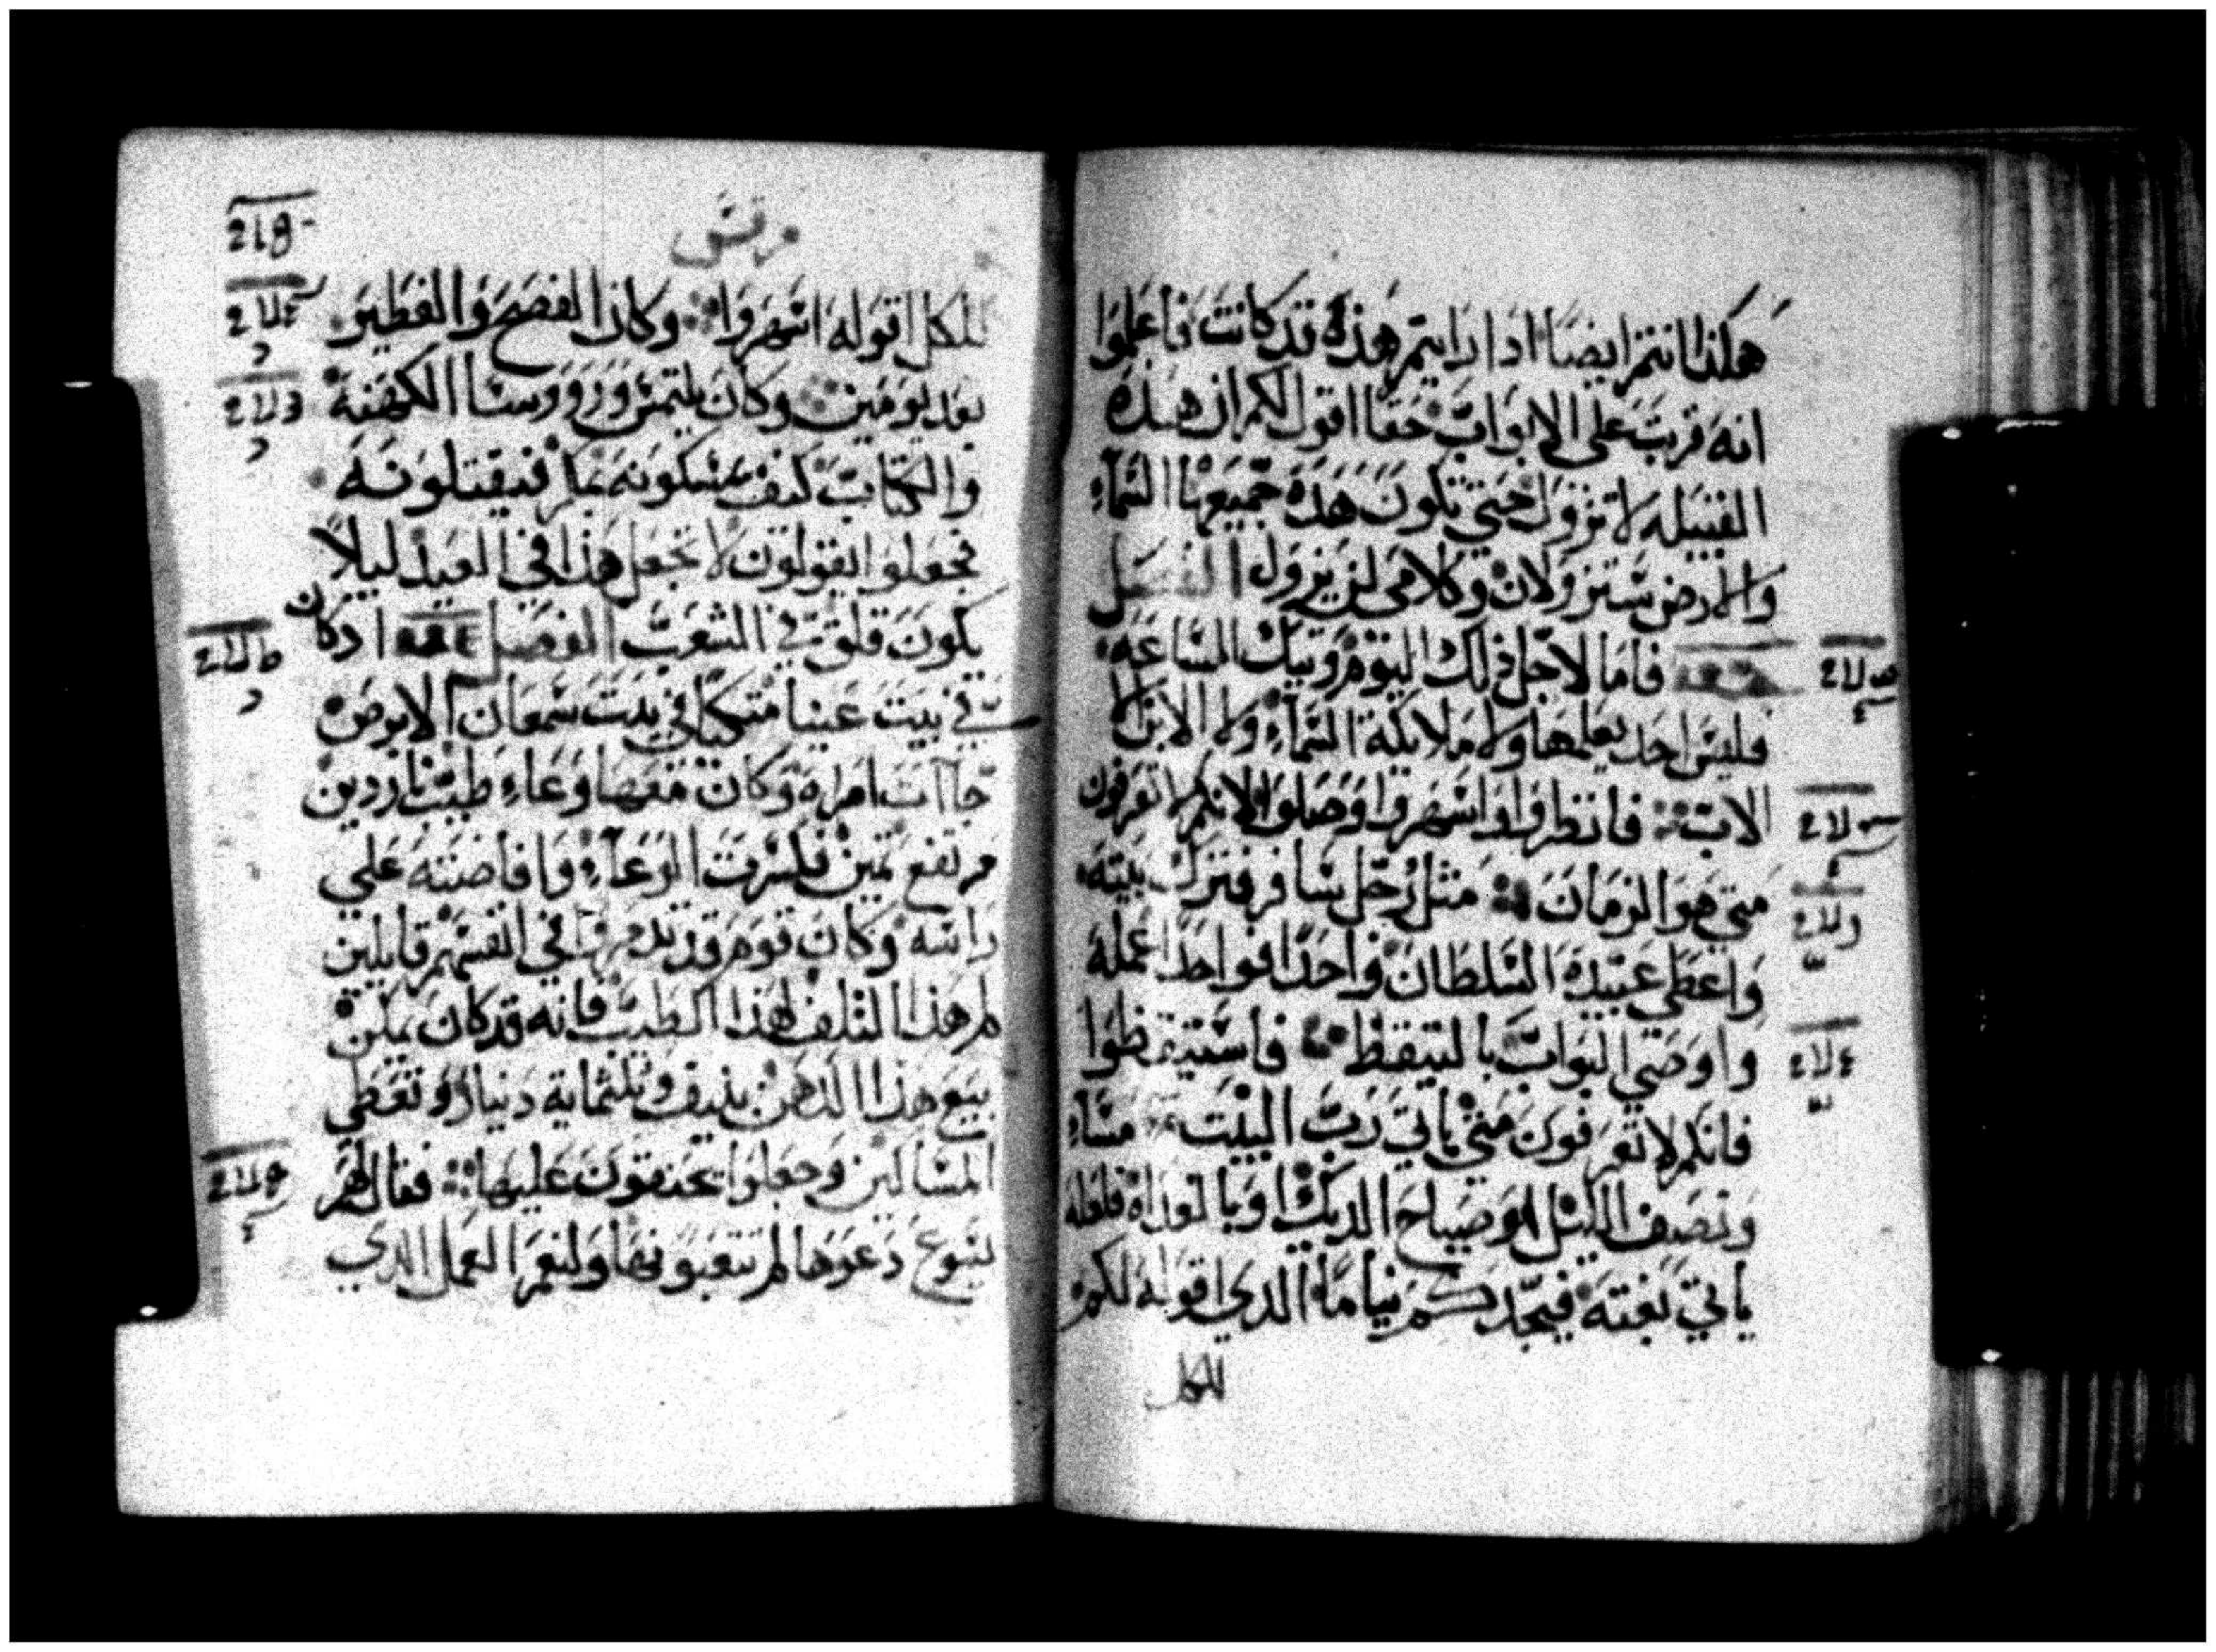 هكذا انتم ايضا ادا رايتم هذه قد كانت فاعلموا
انه قريب علي الابواب حقا اقول لكم ان هذه
القبيله لا تزول حتي تكون هذه جميعها السماء
والارض ستزولان وكلامي لن يزول الفصل
فاما لاجل ذلك اليوم وتيك الساعه
فليس احد يعلمها ولا ملايكة السماء ولا الابن الا
الاب فانظروا واسهروا وصلوا لانكم لا تعرفون
متي هو الزمان مثل رجل سافر فترك بيته
واعطي عبيده السلطان واحدا فواحدا عمله
واوصي البواب بالتيقظ فاستيقظوا
فانكم لا تعرفون متي ياتي رب البيت مساء
ونصف الليل او صياح الديك او بالغداه فلعله
ياتي بغتة فيجدكم نياما الدي اقوله لكم
للكل
مرقس
للكل اقوله اسهروا وكان الفصح والفطير
بعد يومين وكان يلتمس ورووسا الكهنة
والكتاب كيف يمسكونه بمكر فيقتلونه
فجعلوا يقولون لا نجعل هذا في العيد ليلا
يكون قلق في الشعب الفصل اد كان
في بيت عنيا متكيا في بيت سمعان الابرص
جاات امراه وكان معها وعاء طيب ناردين
مرتفع تمين فكسرت الوعاء وافاضته علي
راسه وكان قوم قد تدمروا في انفسهم قايلين
لم هذا التلف لهذا الطيب فانه قد كان يمكن
بيع هذا الدهن بنيف وتلتماية دينار وتعطي
المساكين وجعلوا يحنقون عليها فقال لهم
يسوع دعوها لم تتعبونها ولنعم العمل الدي